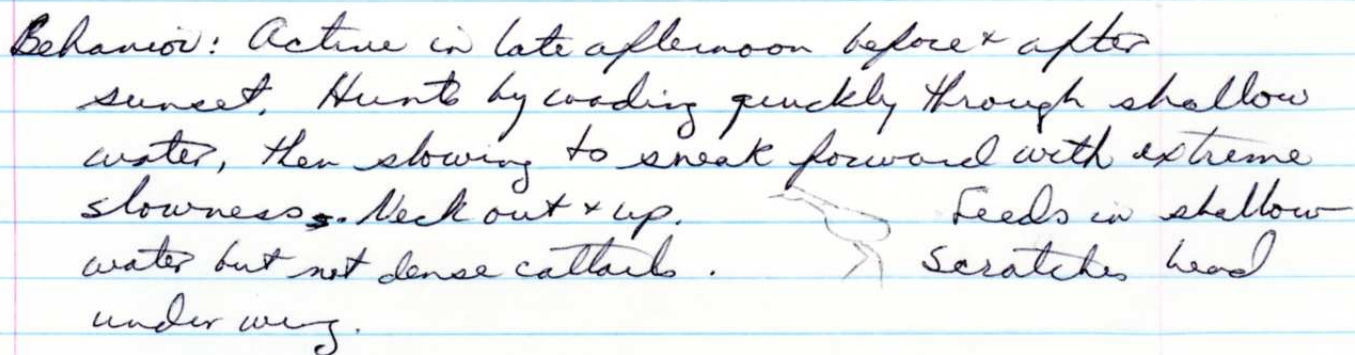 Behavior: Active in late afternoon before + after
sunset. Hunts by wading quickly through shallow
water, then slowing to sneak forward with extreme
slowness. Neck out + up. Feeds in shallow
water but not dense cattails. Scratches head
under wing.